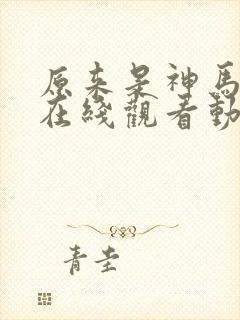 原来是神马
在线觀看動
青圭